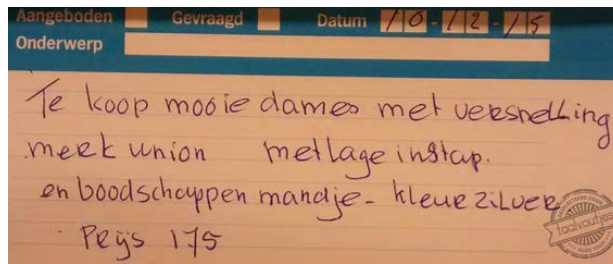 Aangeboden Gevraagd Datum 10-12-15
Onderwerp
Te koop mooie dames met versnelling
merk union met lage instap.
en boodschappen mandje - kleur zilver
Prijs 175
taalvoutjes